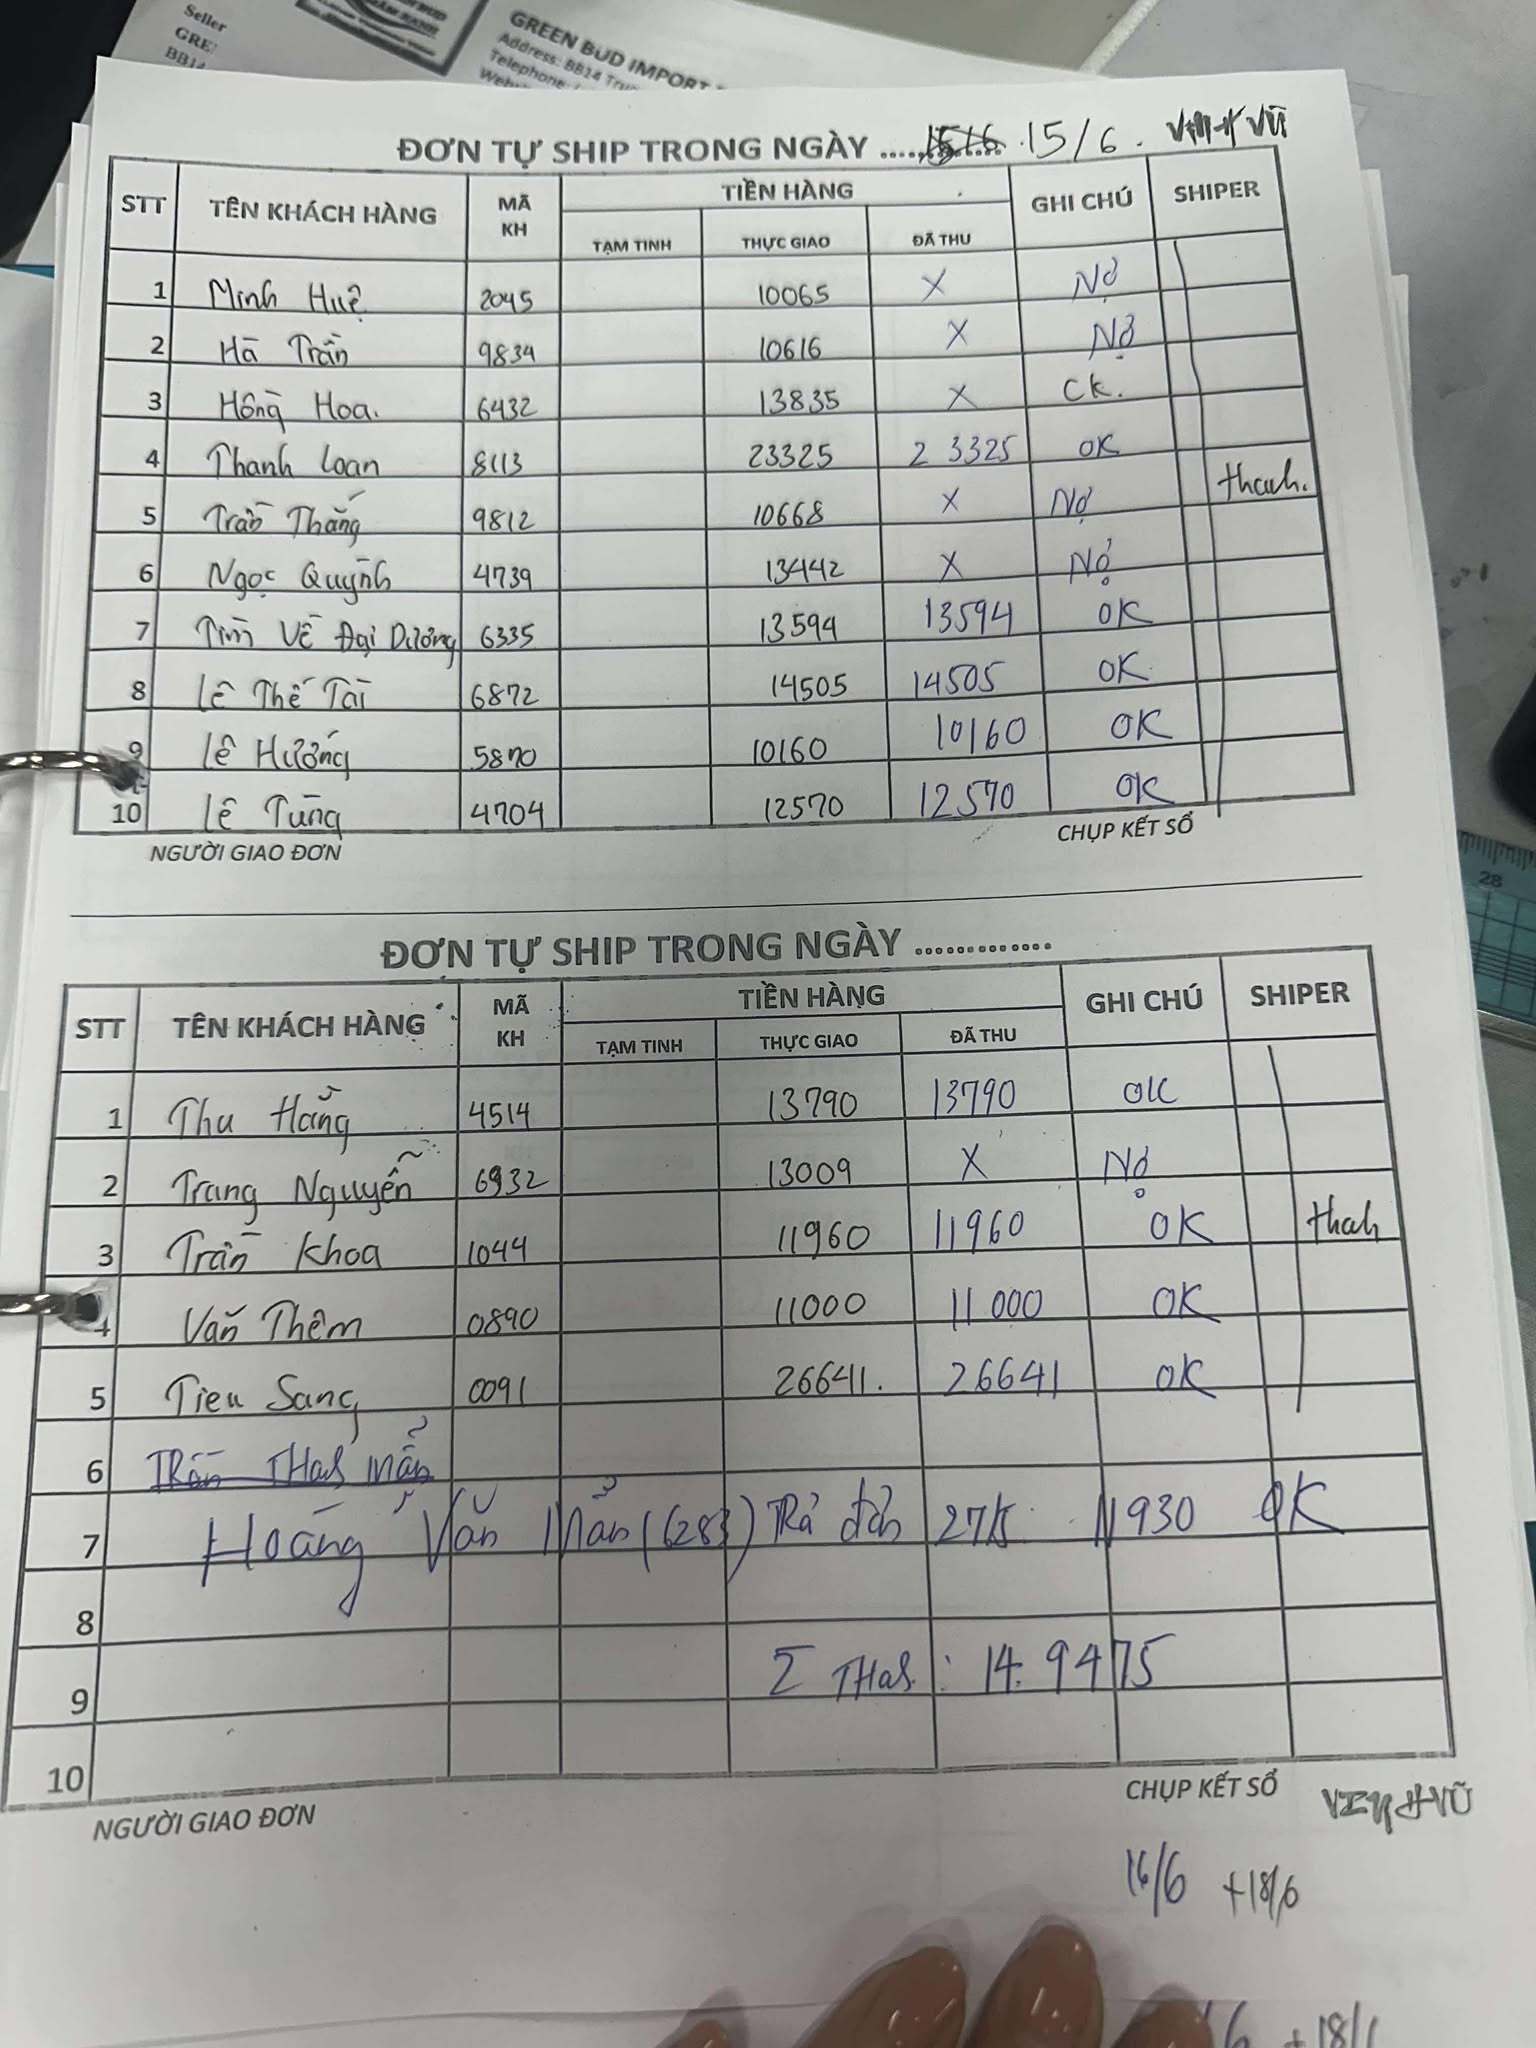 Seller
GREEN BUD IMPORT
Address: BB14
Telephone:
ĐƠN TỰ SHIP TRONG NGÀY ............. 15/6. VŨ
STT TÊN KHÁCH HÀNG MÃ KH TIỀN HÀNG GHI CHÚ SHIPER
TẠM TINH THỰC GIAO ĐÃ THU
1 Minh Huệ 2045 10065 X Nợ
2 Hà Trần 9834 10616 X Nợ
3 Hồng Hoa. 6432 13835 X CK.
4 Thanh Loan 8113 23325 23325 OK
thanh.
5 Trần Thắng 9812 10668 X Nợ
6 Ngọc Quỳnh 4739 13442 X Nợ
7 Tìm Về Đại Dương 6335 13594 13594 OK
8 Lê Thế Tài 6872 14505 14505 OK
9 Lê Hướng 5870 10160 10160 OK
10 Lê Tùng 4704 12570 12570 OK
NGƯỜI GIAO ĐƠN CHỤP KẾT SỔ
ĐƠN TỰ SHIP TRONG NGÀY .............
STT TÊN KHÁCH HÀNG MÃ KH TIỀN HÀNG GHI CHÚ SHIPER
TẠM TINH THỰC GIAO ĐÃ THU
1 Thu Hằng 4514 13790 13790 OK
2 Trang Nguyễn 6932 13009 X Nợ
3 Trần Khoa 1044 11960 11960 OK thah
4 Văn Thêm 0890 11000 11000 OK
5 Tieu Sang 0091 26641. 26641 OK
6
7 Văn Mẫn (6283) Trả đơn 27/5. 11930 OK
8
Σ THah: 14.9475
9
10
NGƯỜI GIAO ĐƠN CHỤP KẾT SỔ
16/6 +18/6